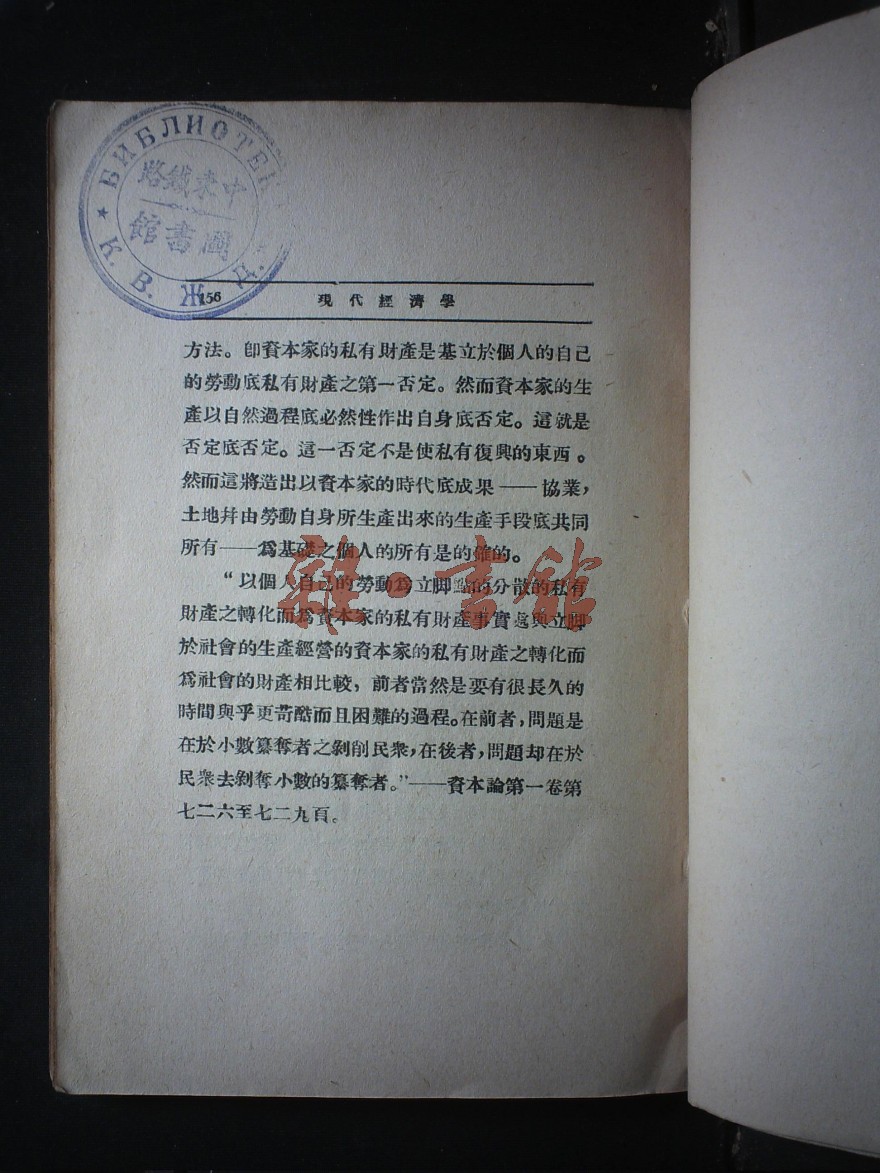 БИБЛИОТЕК
中東鐵路
圖書館
К. В. Ж. Д.
156 現代經濟學
方法。卽資本家的私有財產是基立於個人的自己
的勞動底私有財產之第一否定。然而資本家的生
產以自然過程底必然性作出自身底否定。這就是
否定底否定。這一否定不是使私有復興的東西。
然而這將造出以資本家的時代底成果——協業，
土地幷由勞動自身所生產出來的生產手段底共同
所有——爲基礎之個人的所有是的確的。
“以個人自己的勞動爲立脚點的分散的私有
財產之轉化而爲資本家的私有財產事實處與立脚
於社會的生產經營的資本家的私有財產之轉化而
爲社會的財產相比較，前者當然是要有很長久的
時間與乎更苛酷而且困難的過程。在前者，問題是
在於小數纂奪者之剝削民衆，在後者，問題却在於
民衆去剝奪小數的纂奪者。”——資本論第一卷第
七二六至七二九頁。
雜·書館